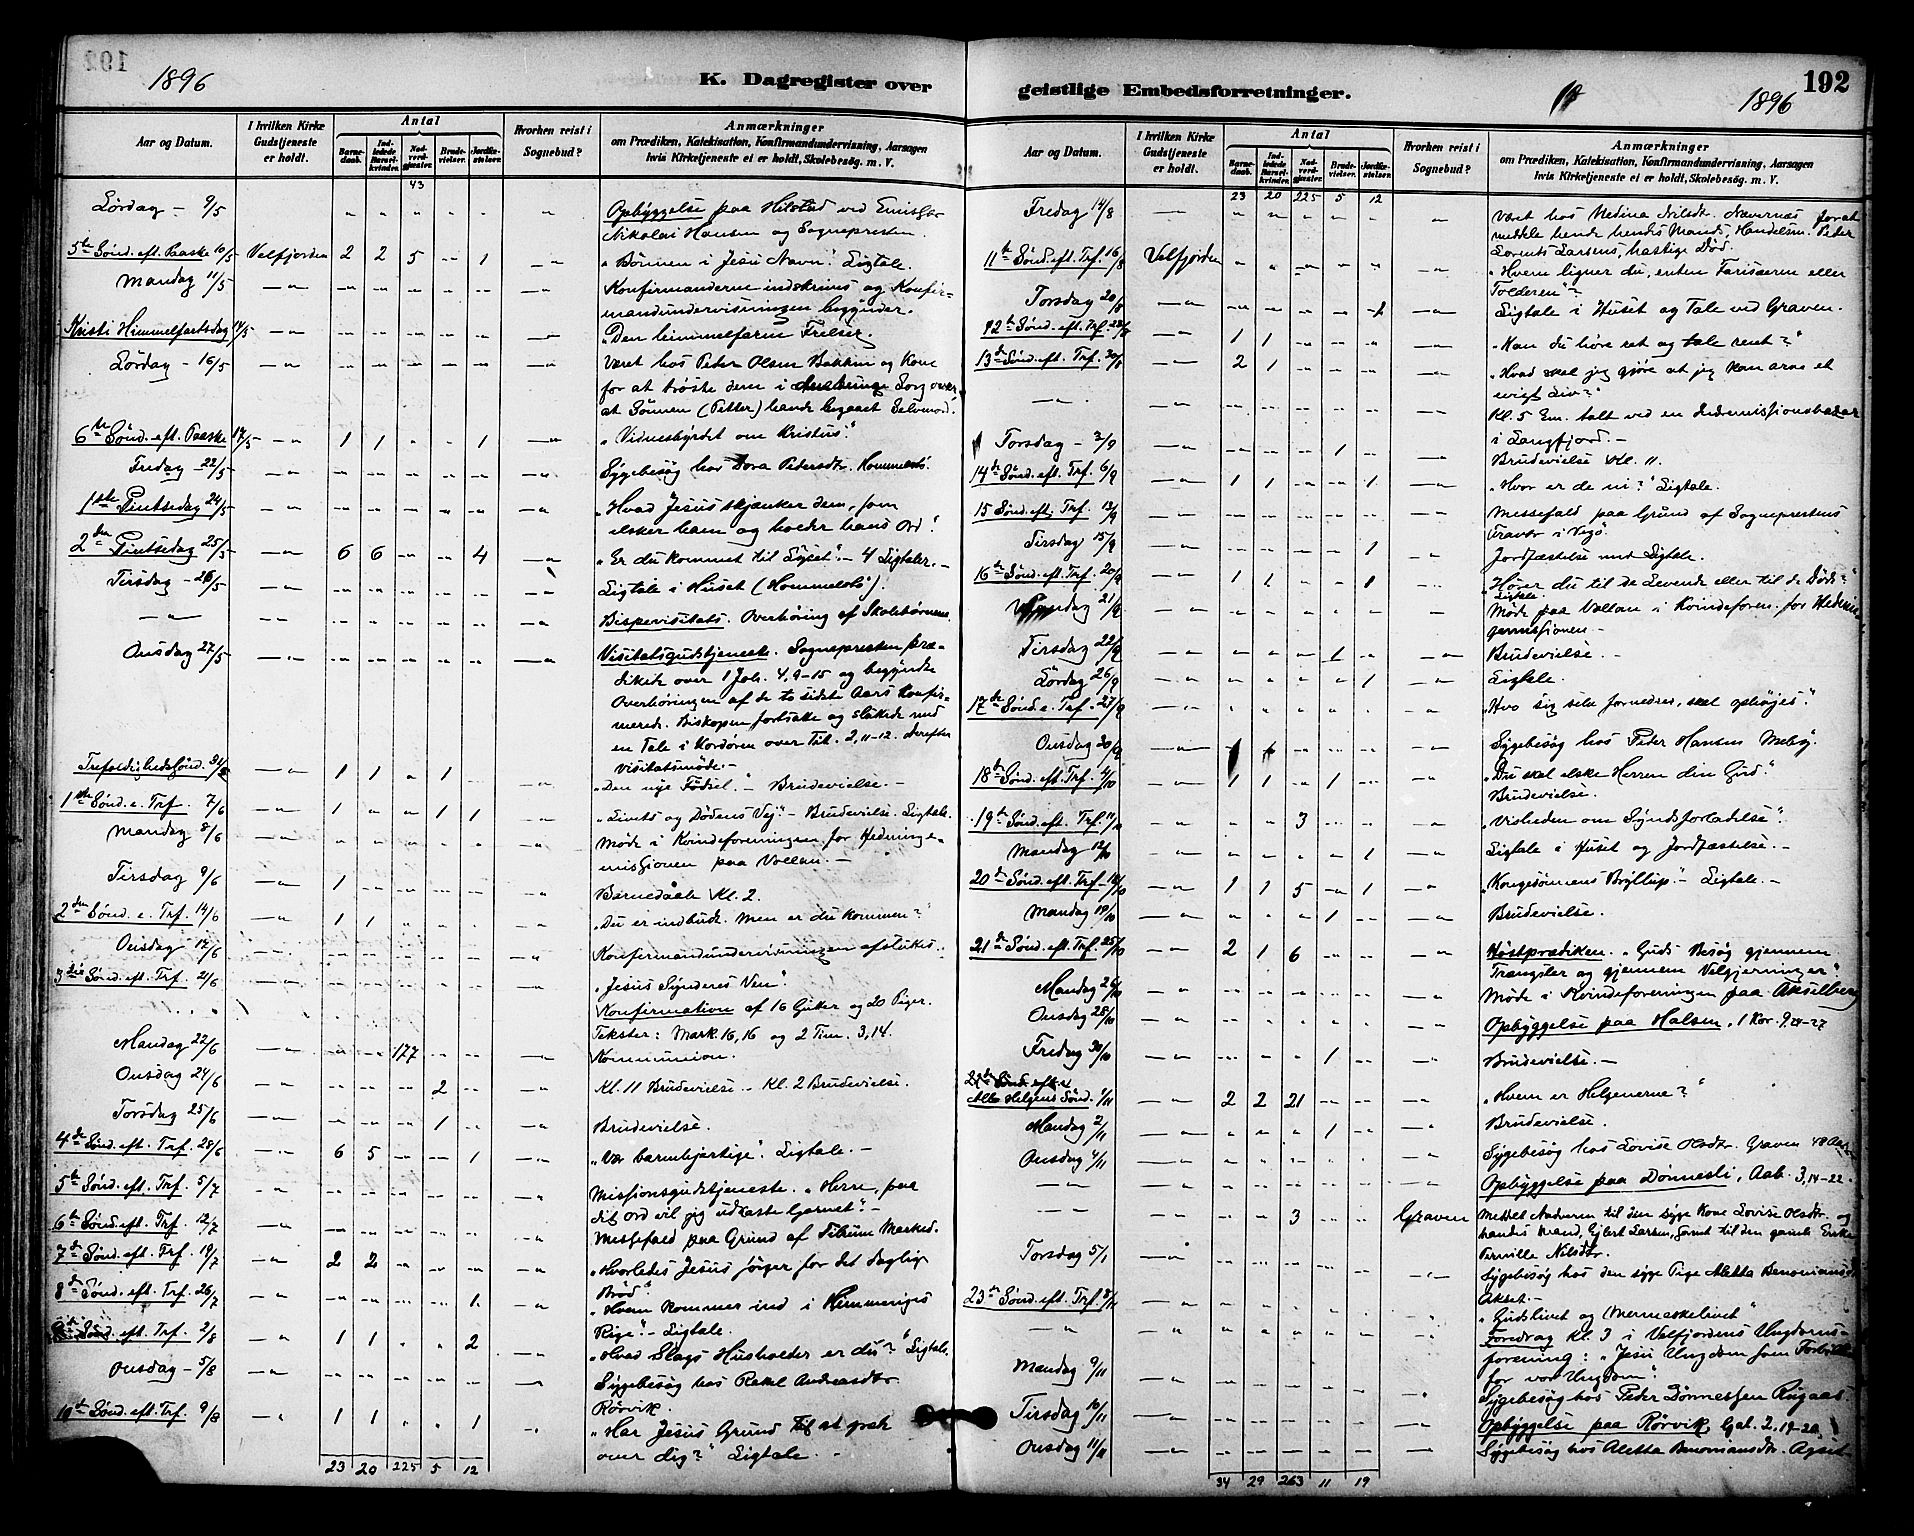 1896
K. Dagregister over
Aar og Datum.
I hvilken Kirke Gudstjeneste er holdt.
Antal
Barnedaab.
Indledede Barselkvinder.
Nadverdgjester.
Brudevielser.
Jordfæstelser.
Hvorhen reist i Sognebud?
Anmærkninger
om Prædiken, Katekisation, Konfirmandundervisning, Aarsagen
hvis Kirketjeneste ei er holdt, Skolebesøg. m. V.
43
Lørdag - 9/5 Opbyggelse paa Hilstad ved Emisær
Nikolai Hansen og Sognepresten.
5te Sønd. eft. Paaske 10/5 Velfjorden 2 2 5 1 "Bønnen i Jesu Navn". Ligtale.
Mandag 11/5 Konfirmanderne indskrives og Konfir-
mandundervisningen begynder.
Kristi Himmelfartsdag 14/5 "Den himmelfarne Frelser".
Lørdag - 16/5 Været hos Peder Olsen Bakken og Kone
for at trøste dem i Sorg over,
at Sønnen (Petter) havde begaaet Selvmord.
6te Sønd. eft. Paaske 17/5 1 1 1 "Vidnesbyrdet om Kristus".
Fredag 22/5 Sygebesøg hos Dora Pedersdtr. Hommelstø.
1ste Pintsedag 24/5 "Hvad Jesus skjænker dem, som
elsker ham og holder hans Ord".
2den Pintsedag 25/5 6 6 4 "Er du kommet til Lyset". - 4 Ligtaler. -
Tirsdag - 26/5 Ligtale i Huset (Hommelstø).
Bispevisitats. Overhøring af Skolebørnene.
Onsdag 27/5 Visitatsgudstjeneste. Sognepresten præ-
dikede over 1 Joh. 4, 9-15 og begyndte
Overhøringen af de to sidste Aars Konfir-
merede. Biskopen fortsatte og sluttede med
en Tale i Kordøren over Tit. 2, 11-12. Derefter
Visitatsmøde. -
Trefoldighedssønd. 31/5 1 1 1 "Den nye Fødsel". - Brudevielse. -
1ste Sønd. e. Trf. 7/6 1 1 1 "Livets og Dødens Vej". - Brudevielse. Ligtale.
Mandag 8/6 Møde i Kvindeforeningen for Hedninge-
missionen paa Vollan. -
Tirsdag 9/6 1 Barnedaab Kl. 2.
2den Sønd. e. Trf. 14/6 1 1 "Du er indbudt. Men er du kommen?"
Onsdag 17/6 Konfirmandundervisningen afsluttes.
3die Sønd. eft. Trf. 21/6 "Jesus Synderes Ven".
Konfirmation af 16 Gutter og 20 Piger.
Tekster: Mark. 16, 16 og 2 Tim. 3, 14.
Mandag 22/6 177 Kommunion.
Onsdag 24/6 2 Kl. 11 Brudevielse - Kl. 2 Brudevielse.
Torsdag 25/6 1 Brudevielse.
4de Sønd. eft. Trf. 28/6 6 5 1 "Vær barmhjertige". Ligtale. -
5te Sønd. eft. Trf. 5/7 Missionsgudstjeneste. "Herre, paa
dit Ord vil jeg udkaste Garnet". -
6te Sønd. eft. Trf. 12/7 Messefald paa Grund af Tilrum Marked.
7de Sønd. eft. Trf. 19/7 2 2 "Hvorledes Jesus sørger for det daglige
Brød".
8de Sønd. eft. Trf. 26/7 1 "Hvem kommer ind i Himmeriges
Rige". - Ligtale.
Sønd. eft. Trf. 2/8 1 1 2 "Hvad Slags Husholder er du?" Ligtale.
Onsdag - 5/8 Sygebesøg hos Rakel Andreasdtr
Rørvik.
10de Sønd. eft. Trf. 9/8 1 1 1 "Har Jesus Grund til at græde
over dig?" Ligtale. -
23 20 225 5 12
geistlige Embedsforretninger.
1896
192
Aar og Datum.
I hvilken Kirke Gudstjeneste er holdt.
Antal
Barnedaab.
Indledede Barselkvinder.
Nadverdgjester.
Brudevielser.
Jordfæstelser.
Hvorhen reist i Sognebud?
Anmærkninger
om Prædiken, Katekisation, Konfirmandundervisning, Aarsagen
hvis Kirketjeneste ei er holdt, Skolebesøg. m. V.
23 20 225 5 12
Fredag 14/8 Været hos Medina Nilsdtr. Nævernes for at
meddele hende hendes Mands, Handelsm. Peder
Lorents Larsens, hastige Død.
11te Sønd. eft. Trf. 16/8 Velfjorden "Hvem ligner du, enten Farisæren eller
Tolderen"?
Torsdag 20/8 Ligtale i Huset og Tale ved Graven.
12te Sønd. eft. Trf. 1 1 "Kan du høre ret og tale rent?"
13de Sønd. eft. Trf. 30/8 2 1 "Hvad skal jeg gjøre at jeg kan arve et
evigt Liv?"
Kl. 5 Em. talt ved en Indremissionsbazar
i Langfjord. -
Torsdag - 3/9 1 Brudevielse Kl. 11.
14de Sønd. eft. Trf. 6/9 1 1 1 "Hvor er de ni?" Ligtale.
15 Sønd. eft. Trf. 13/9 Messefald paa Grund af Sogneprestens
Fravær i Vegø.
Tirsdag 15/9 1 Jordfæstelse med Ligtale.
16te Sønd. eft. Trf. 20/9 1 1 1 "Hører du til de Levende eller til de Døde?"
Ligtale.
Mandag 21/9 Møde paa Vollan i Kvindeforen. for Hednin-
gemissionen. -
Tirsdag 22/9 1 Brudevielse.
Lørdag 26/9 1 Ligtale.
17de Sønd. e. Trf. 27/9 "Hvo sig selv fornedrer, skal ophøjes".
Onsdag 30/9 Sygebesøg hos Peder Hansen Mebø.
18te Sønd. eft. Trf. 4/10 1 1 1 "Du skal elske Herren din Gud".
Brudevielse.
19te Sønd. eft. Trf. 11/10 3 "Visheden om Syndsforladelse".
Mandag 12/10 1 Ligtale i Huset og Jordfæstelse. -
20de Sønd. eft. Trf. 18/10 1 1 5 1 "Kongesønnens Bryllup". - Ligtale. -
Mandag 19/10 1 Brudevielse.
21de Sønd. eft. Trf. 25/10 2 1 6 Høstprædiken. "Guds Besøg gjennem
Trængsler og gjennem Velgjerninger".
Mandag 26/10 Møde i Kvindeforeningen paa Akselberg
Onsdag 28/10 Opbyggelse paa Halsen, 1 Kor. 9, 24-27
Fredag 30/10 1 Brudevielse. -
22de Sønd. eft.
Alle Helgens Sønd. 1/11 2 2 21 "Hvem er Helgenerne?"
Mandag 2/11 1 Brudevielse.
Onsdag 4/11 Sygebesøg hos Lovise Olsdtr. Graven
Opbyggelse paa Dønnesli, Aab. 3, 14-22.
3 Graven Meddelt Nadveren til den syge Kone Lovise Olsdtr. og
hendes Mand, Ejlert Larsen, samt til den gamle Enke
Pernille Nilsdtr.
Torsdag 5/1 Sygebesøg hos den syge Pige Aletta Benoniansdtr
Akset. -
23de Sønd. eft. Trf. 8/11 "Gudslivet og Menneskelivet"
Foredrag Kl. 3 i Velfjordens Ungdoms-
forening: "Jesu Ungdom som Forbillede
for vor Ungdom".
Mandag 9/11 Sygebesøg hos Peder Dønnessen Rugaas.
Tirsdag 10/11 Opbyggelse paa Rørvik Gal. 2, 19-20.
Onsdag 11/11 Sygebesøg hos Aletta Benoniansdtr. Agset
34 29 263 11 19